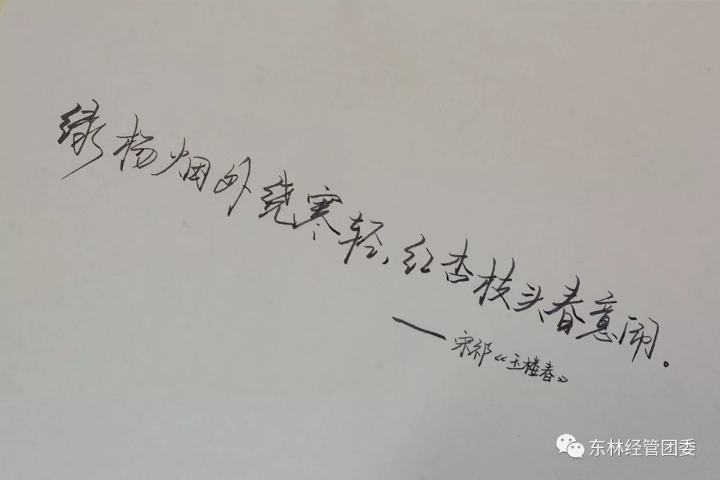 绿杨烟外绕寒轻，红杏枝头春意闹。
——宋祁《玉楼春》
东林经管团委